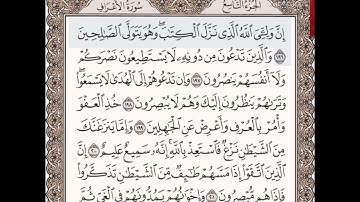 الجزء التاسع سورة الأعراف
إِنَّ وَلِـِّۧيَ ٱللَّهُ ٱلَّذِي نَزَّلَ ٱلۡكِتَٰبَۖ وَهُوَ يَتَوَلَّى ٱلصَّٰلِحِينَ
١٩٦ وَٱلَّذِينَ تَدۡعُونَ مِن دُونِهِۦ لَا يَسۡتَطِيعُونَ نَصۡرَكُمۡ
وَلَآ أَنفُسَهُمۡ يَنصُرُونَ ١٩٧ وَإِن تَدۡعُوهُمۡ إِلَى ٱلۡهُدَىٰ لَا يَسۡمَعُواْۖ
وَتَرَىٰهُمۡ يَنظُرُونَ إِلَيۡكَ وَهُمۡ لَا يُبۡصِرُونَ ١٩٨ خُذِ ٱلۡعَفۡوَ
وَأۡمُرۡ بِٱلۡعُرۡفِ وَأَعۡرِضۡ عَنِ ٱلۡجَٰهِلِينَ ١٩٩ وَإِمَّا يَنزَغَنَّكَ
مِنَ ٱلشَّيۡطَٰنِ نَزۡغٞ فَٱسۡتَعِذۡ بِٱللَّهِۚ إِنَّهُۥ سَمِيعٌ عَلِيمٌ ٢٠٠ إِنَّ
ٱلَّذِينَ ٱتَّقَوۡاْ إِذَا مَسَّهُمۡ طَٰٓئِفٞ مِّنَ ٱلشَّيۡطَٰنِ تَذَكَّرُواْ
فَإِذَا هُم مُّبۡصِرُونَ ٢٠١ وَإِخۡوَٰنُهُمۡ يَمُدُّونَهُمۡ فِي ٱلۡغَيِّ ثُمَّ